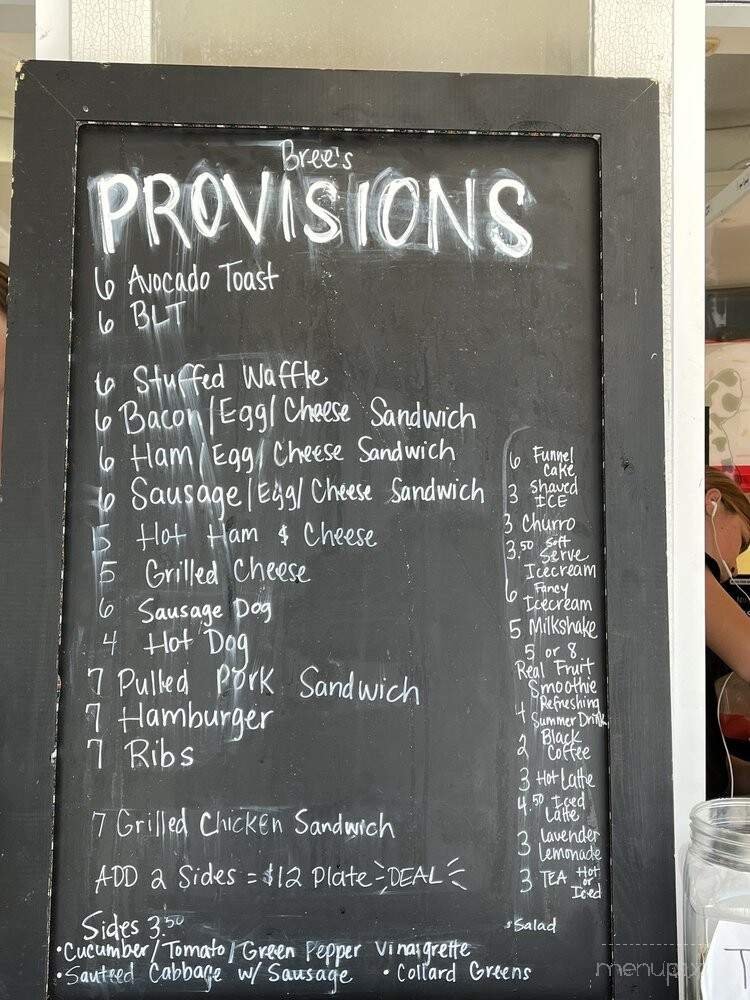 Bree's
PROVISIONS
6 Avocado Toast
6 BLT
6 Stuffed Waffle
6 Bacon/Egg/Cheese Sandwich
6 Ham/Egg/Cheese Sandwich
6 Sausage/Egg/Cheese Sandwich
5 Hot Ham & Cheese
5 Grilled Cheese
6 Sausage Dog
4 Hot Dog
7 Pulled Pork Sandwich
7 Hamburger
7 Ribs
7 Grilled Chicken Sandwich
ADD 2 Sides = $12 Plate DEAL
Sides 3.50
•Cucumber/Tomato/Green Pepper Vinaigrette
•Sauteed Cabbage w/ Sausage • Collard Greens
•Salad
6 Funnel
cake
3 Shaved
ICE
3 Churro
3.50 Soft
Serve
Icecream
6 Fancy
Icecream
5 Milkshake
5 or 8
Real Fruit
Smoothie
4 Refreshing
Summer Drink
2 Black
Coffee
3 Hot Latte
4.50 Iced
Latte
3 lavender
Lemonade
3 TEA Hot
or
Iced
menupix
T